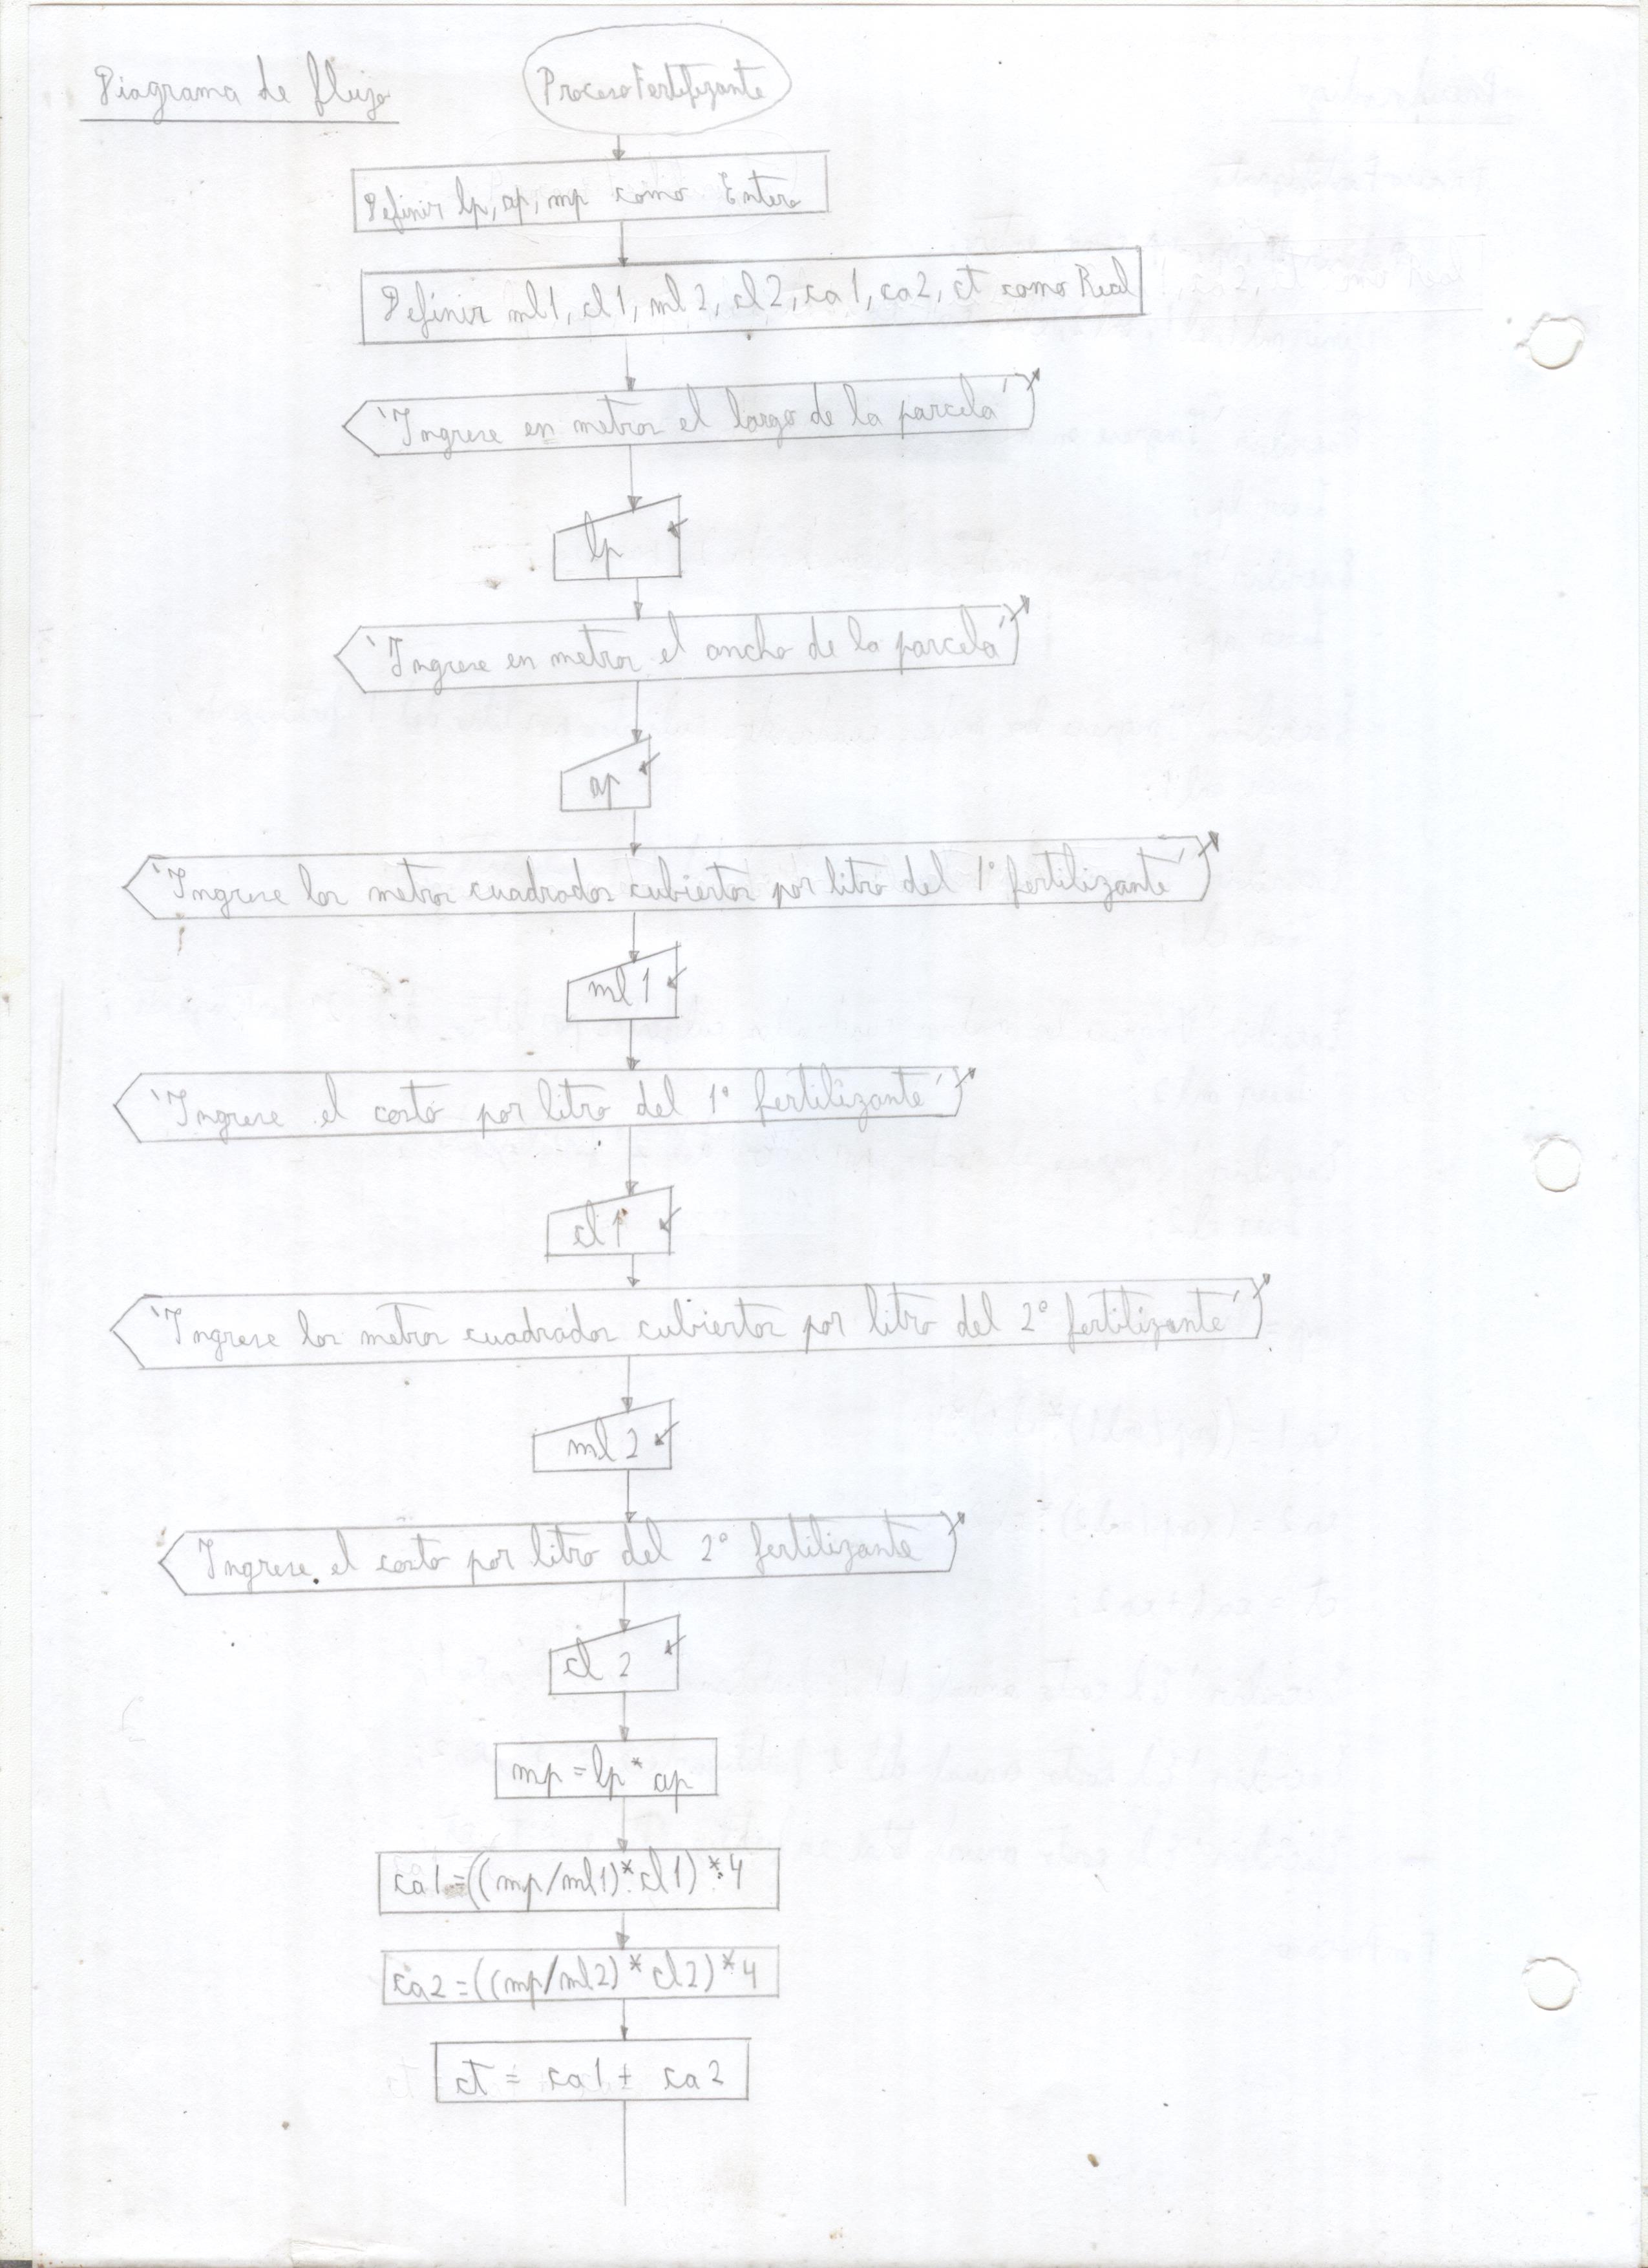 Diagrama de flujo
Proceso Fertilizante
Definir lp, ap, mp como Entero
Definir ml1, cl1, ml2, cl2, ca1, ca2, ct como Real
'Ingrese en metros el largo de la parcela'
lp
'Ingrese en metros el ancho de la parcela'
ap
'Ingrese los metros cuadrados cubiertos por litro del 1° fertilizante'
ml1
'Ingrese el costo por litro del 1° fertilizante'
cl1
'Ingrese los metros cuadrados cubiertos por litro del 2° fertilizante'
ml2
Ingrese el costo por litro del 2° fertilizante
cl2
mp = lp * ap
ca1 = ((mp/ml1)*cl1)*4
ca2 = ((mp/ml2)*cl2)*4
ct = ca1 + ca2